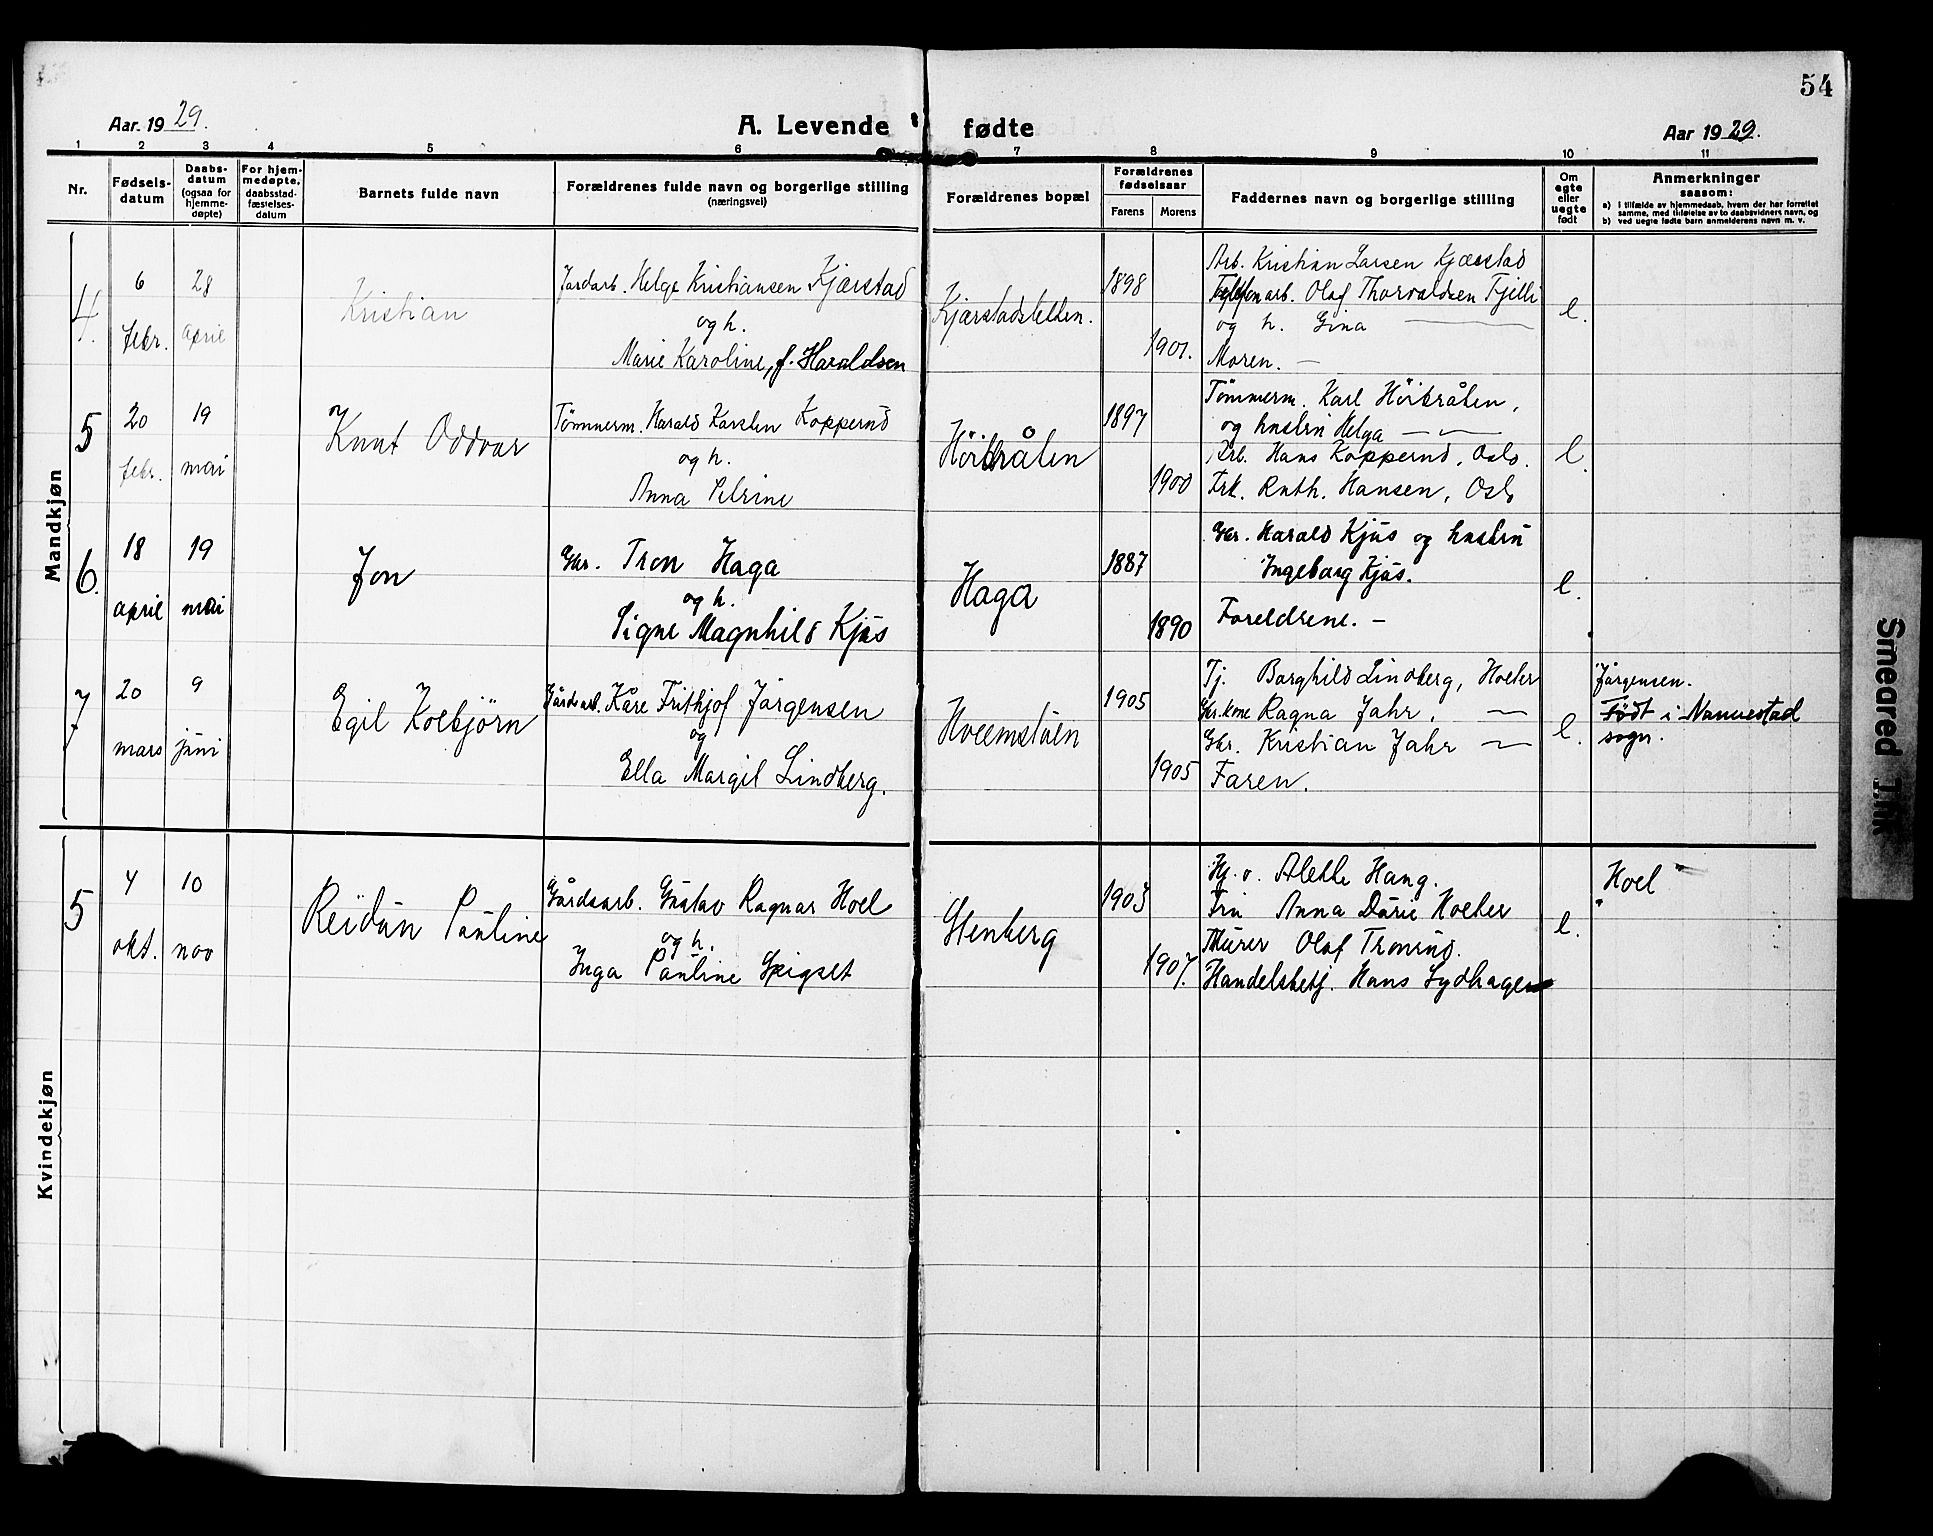 54
Aar. 19 29.
A. Levende fødte
Aar 19 29.
1 2 3 4 5 6 7 8 9 10 11
Nr.
Fødsels-
datum
Daabs-
datum
(ogsaa for
hjemme-
døpte)
For hjem-
medøpte,
daabsstad-
fæstelses-
datum
Barnets fulde navn
Forældrenes fulde navn og borgerlige stilling
(næringsvei)
Forældrenes bopæl
Forældrenes
fødselsaar
Farens Morens
Faddernes navn og borgerlige stilling
Om
egte
eller
uegte
født
Anmerkninger
saasom:
a) i tilfælde av hjemmedaab, hvem der har forrettet
samme, med tilføielse av to daabsvidners navn, og
b) ved uegte fødte barn anmelderens navn m. v.
Mandkjøn
4.
6
febr.
28
april
Kristian
Jordarb. Helge Kristiansen Kjærstad
og h.
Marie Karoline, f. Haraldsen
Kjærstadstellen.
1898
1901.
Arb. Kristian Larsen Kjærstad
Telefonarb. Olaf Thorvaldsen Fjelli
og h. Gina —
Moren. —
e.
5
20
febr.
19
mai
Knut Oddvar
Tømmerm. Harald Karsten Koppernd
og h.
Anna Petrine
Höibråten
1897
1900
Tømmerm. Karl Höibråten,
og hustru Helga —
Arb. Hans Koppernd, Oslo.
Frk. Ruth. Hansen, Oslo
e.
6.
18
april
19
mai
Jon
Gbr. Tron Haga
og h.
Signe Magnhild Kjus
Haga
1887
1890
Gbr. Harald Kjus og hustru
Ingeborg Kjus.
Foreldrene. —
e.
7
20
mars
9
juni
Egil Kolbjörn
Gårdsarb. Kåre Frithjof Jörgensen
og
Ella Margit Lindberg.
Hveemstuen
1905
1905
Tj. Borghild Lindberg, Holter
Gbr.kone Ragna Jahr. —
Gbr. Kristian Jahr —
Faren.
e.
Jörgensen.
Født i Nannestad
sogn.
Kvindekjøn
5
4
okt.
10
nov
Reidun Pauline
Gårdsarb. Gustav Ragnar Hoel
og h.
Inga Pauline Spigset
Stenberg
1903
1907.
Hj. v. Alette Haug.
Fru Anna Dorie Holter
Murer Olaf Tronrud.
Handelsbetj. Hans Sydhagen
e.
Hoel
Smeared Ink